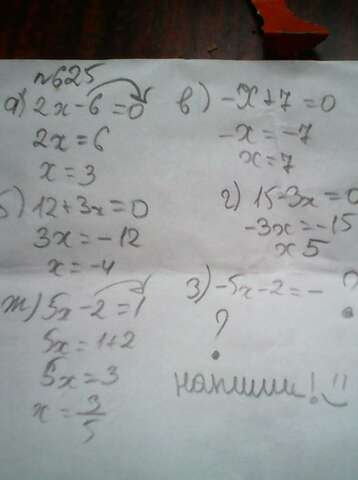 №625
а) 2x-6=0
2x=6
x=3
б) 12+3x=0
3x=-12
x=-4
ж) 5x-2=1
5x=1+2
5x=3
x=3/5
в) -x+7=0
-x=-7
x=7
г) 15-3x=0
-3x=-15
x 5
з) -5x-2=- ?
?
напиши!